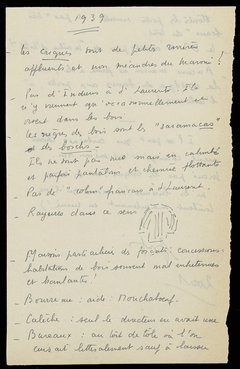 1939
- Les criques sont de petites rivières
affluents et non méandres du Maroni !
- Pas d'Indiens à St Laurent. Ils
n'y viennent qu'occasionnellement et
vivent dans les bois.
- les nègres des bois sont les "saramacas"
et des boschs.
Ils ne sont pas nus mais en calimbé
et parfois pantalon et chemise flottante
- Pas de "colons français à St Laurent.
- Rayures dans ce sens
- Maison particulière de forçats, concessions :
habitation de bois souvent mal entretenues
et branlantes !
- Bourreau : aide : Mouchaboeuf.
- Calèche : seul le directeur en avait une
- Bureaux : au toit de tôle où l'on
cuisait littéralement sauf à laisser